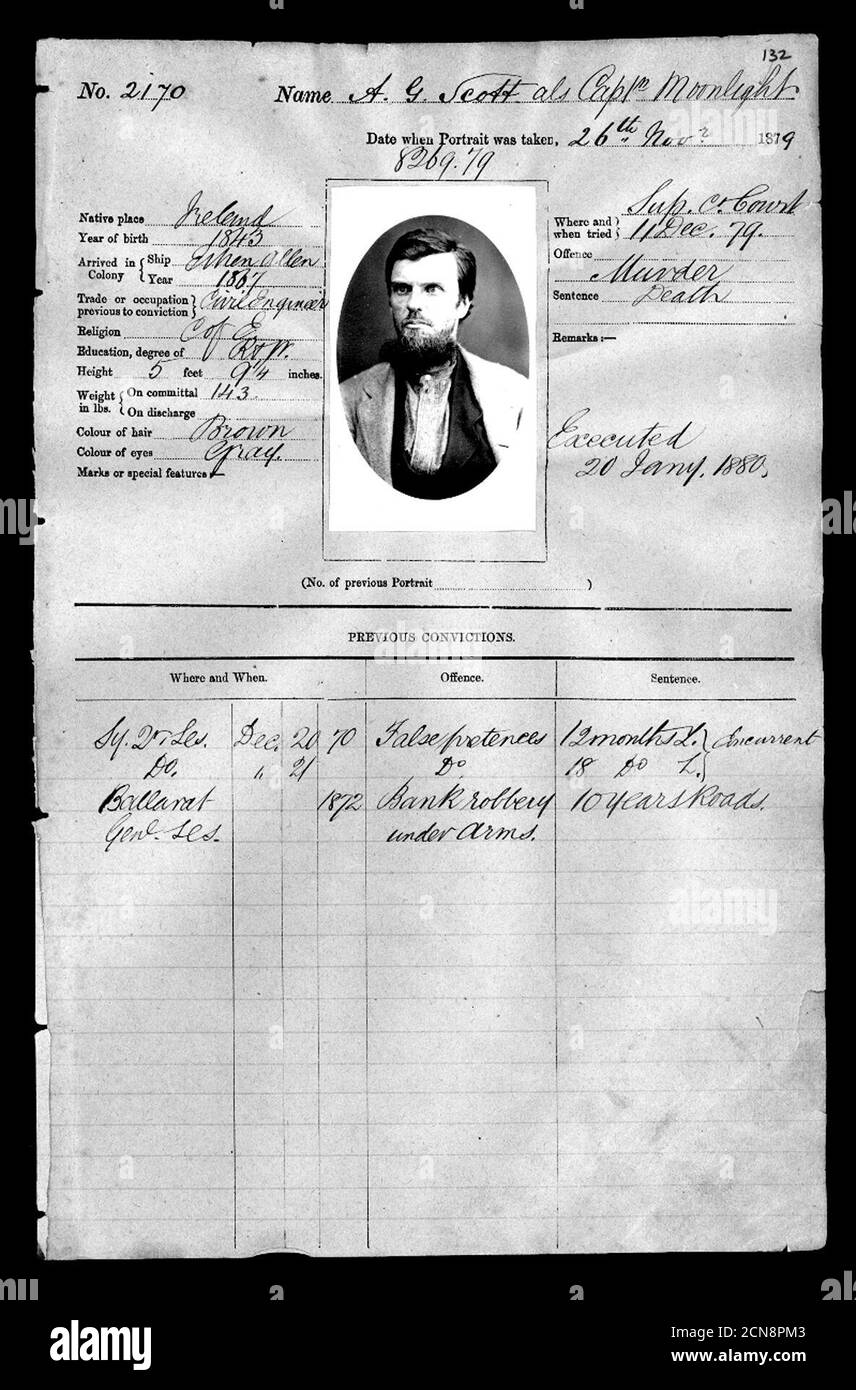 132
No. 2170 Name A. G. Scott als Captn Moonlight
Date when Portrait was taken, 26th Novr 1879
8269.79
Native place Ireland
Year of birth 1843
Arrived in Colony { Ship Ethen Allen
Year 1867
Trade or occupation previous to conviction } Civil Engineer
Religion C of E
Education, degree of R & W.
Height 5 feet 9¼ inches.
Weight in lbs. { On committal 143
On discharge
Colour of hair Brown
Colour of eyes Gray.
Marks or special features—
Where and when tried } Sup. Ct. Court
11 Dec. 79.
Offence Murder
Sentence Death
Remarks:—
Executed
20 Jany. 1880,
(No. of previous Portrait )
PREVIOUS CONVICTIONS.
Where and When. Offence. Sentence.
Sy. Qr. Ses. Dec. 20 70 False pretences 12 months L. } Concurrent
Do. " 21 Do 18 Do L.
Ballarat 1872 Bank robbery 10 years Roads.
Genl. Ses. under arms.
alamy
Image ID: 2CN8PM3
www.alamy.com